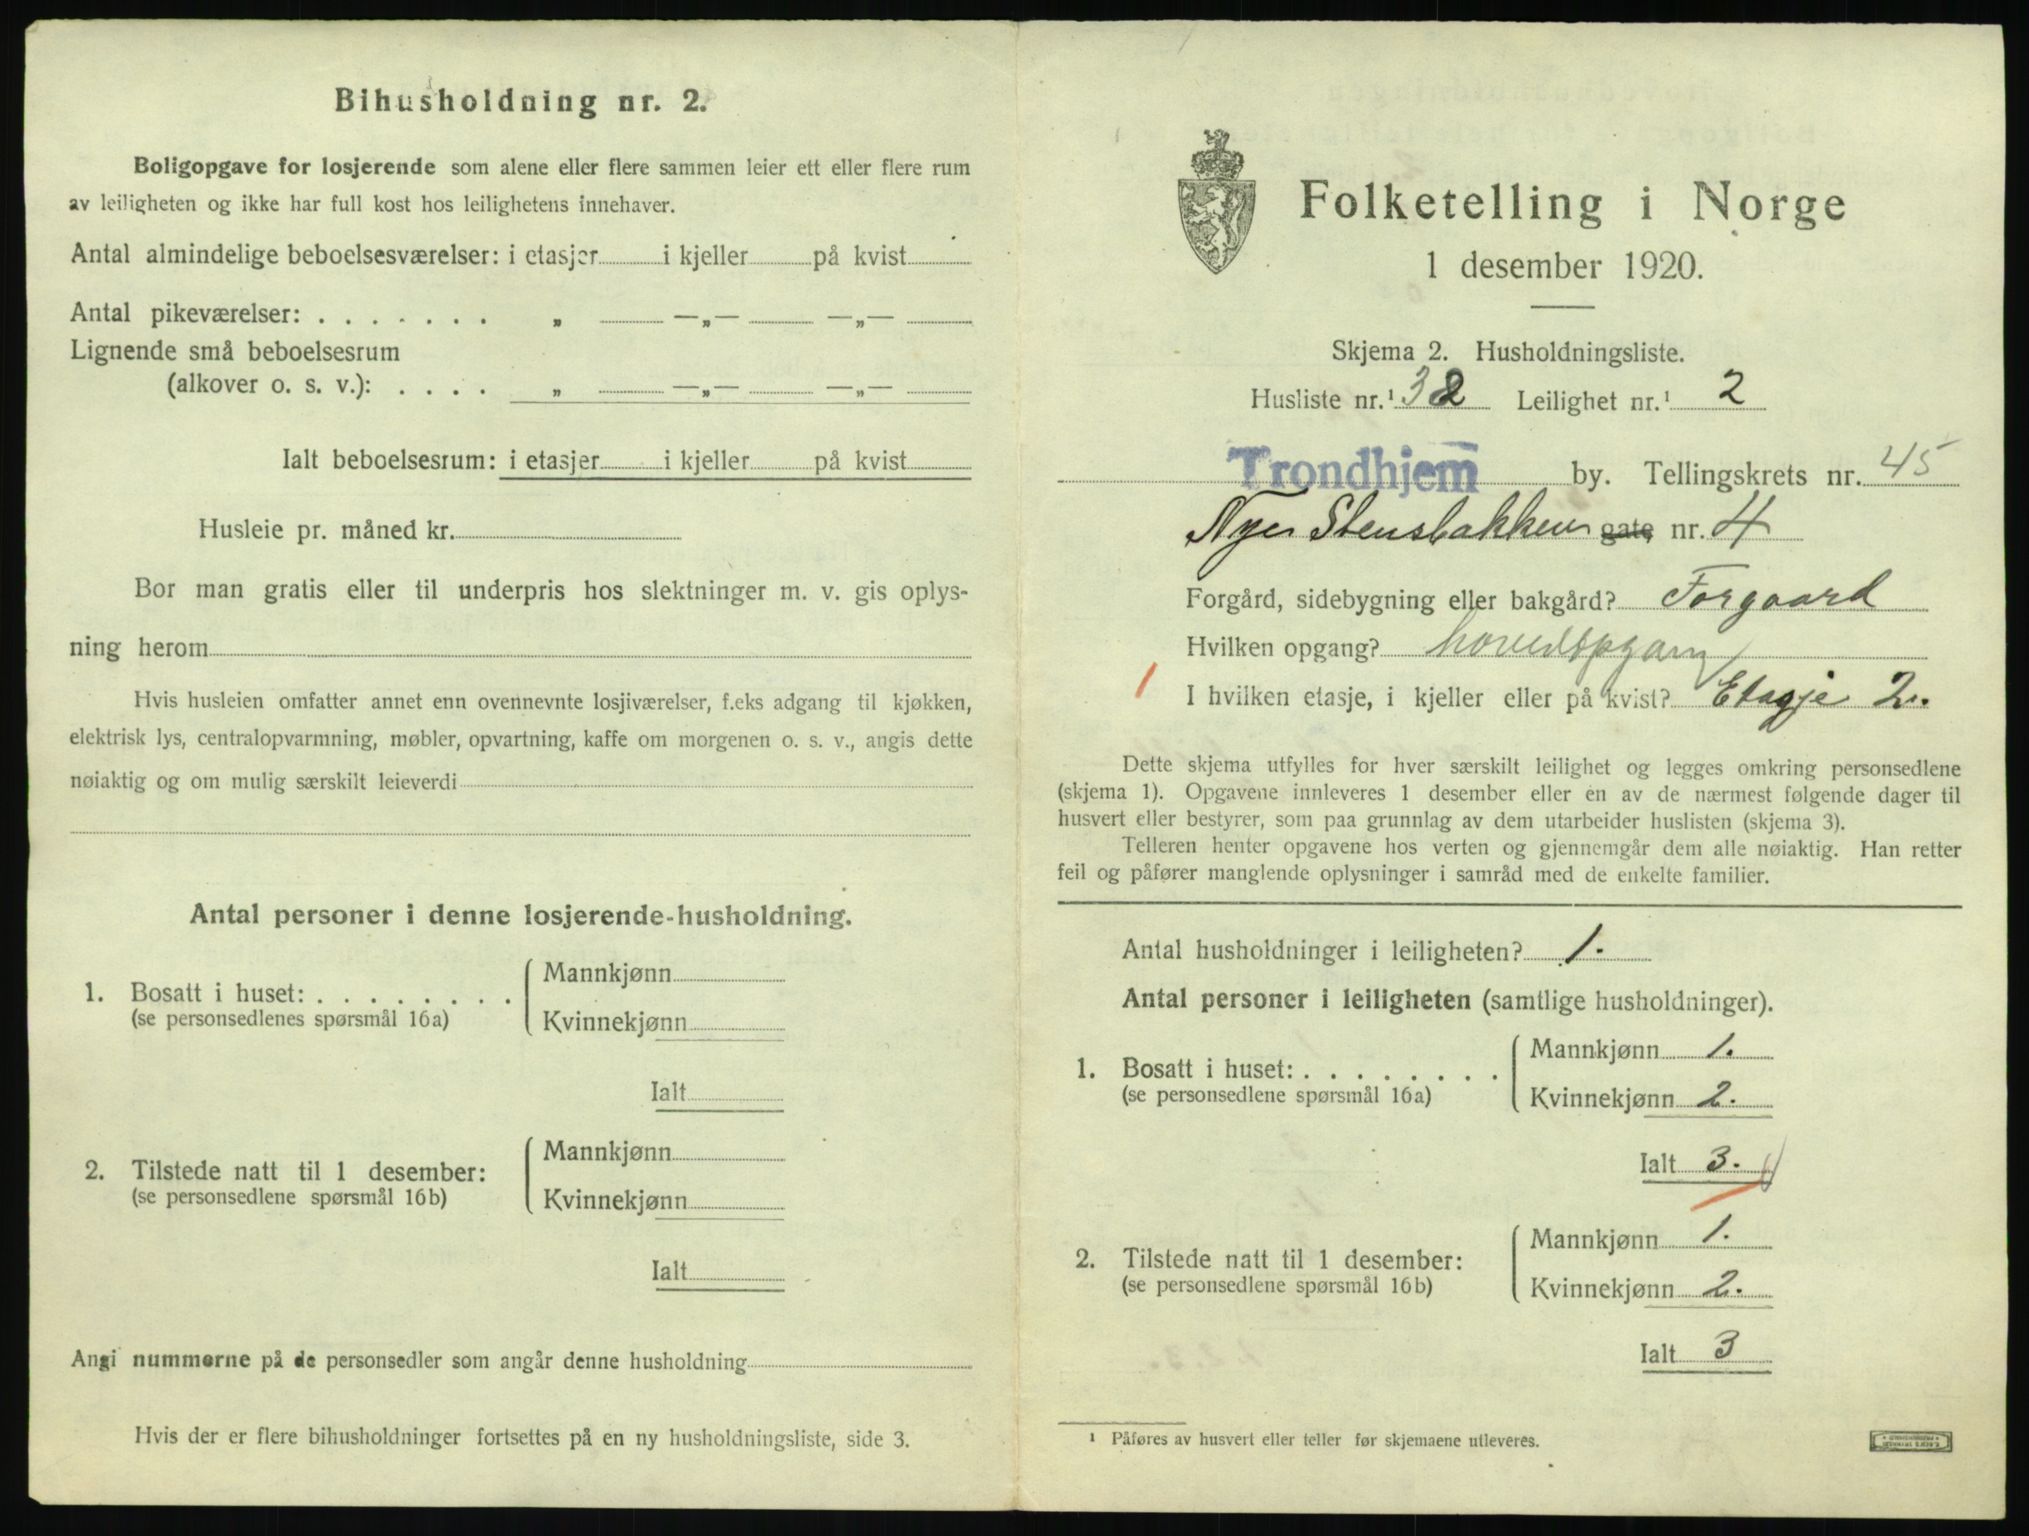 Bihusholdning nr. 2.
Boligopgave for losjerende som alene eller flere sammen leier ett eller flere rum
av leiligheten og ikke har full kost hos leilighetens innehaver.
Antal almindelige beboelsesværelser: i etasjer i kjeller på kvist
Antal pikeværelser: . . . . . . . „ —„— —„—
Lignende små beboelsesrum
(alkover o. s. v.): . . . . „ —„— —„—
Ialt beboelsesrum: i etasjer i kjeller på kvist
Husleie pr. måned kr.
Bor man gratis eller til underpris hos slektninger m. v. gis oplys-
ning herom
Hvis husleien omfatter annet enn ovennevnte losjiværelser, f.eks adgang til kjøkken,
elektrisk lys, centralopvarmning, møbler, opvartning, kaffe om morgenen o. s. v., angis dette
nøiaktig og om mulig særskilt leieverdi
Antal personer i denne losjerende-husholdning.
1. Bosatt i huset: . . . . . . . .
(se personsedlenes spørsmål 16a)
Mannkjønn
Kvinnekjønn
Ialt
2. Tilstede natt til 1 desember:
(se personsedlene spørsmål 16b)
Mannkjønn
Kvinnekjønn
Ialt
Angi nummerne på de personsedler som angår denne husholdning
Hvis der er flere bihusholdninger fortsettes på en ny husholdningsliste, side 3.
Folketelling i Norge
1 desember 1920.
Skjema 2. Husholdningsliste.
Husliste nr.¹ 32 Leilighet nr.¹ 2
Trondhjem by. Tellingskrets nr. 45
Nye Stensbakken gate nr. 4
Forgård, sidebygning eller bakgård? Forgaard
Hvilken opgang? hovedopgang
1 I hvilken etasje, i kjeller eller på kvist? Etagje 2.
Dette skjema utfylles for hver særskilt leilighet og legges omkring personsedlene
(skjema 1). Opgavene innleveres 1 desember eller en av de nærmest følgende dager til
husvert eller bestyrer, som paa grunnlag av dem utarbeider huslisten (skjema 3).
Telleren henter opgavene hos verten og gjennemgår dem alle nøiaktig. Han retter
feil og påfører manglende oplysninger i samråd med de enkelte familier.
Antal husholdninger i leiligheten? 1.
Antal personer i leiligheten (samtlige husholdninger).
1. Bosatt i huset: . . . . . . . .
(se personsedlene spørsmål 16a)
Mannkjønn 1.
Kvinnekjønn 2.
Ialt 3.
2. Tilstede natt til 1 desember:
(se personsedlene spørsmål 16b)
Mannkjønn 1.
Kvinnekjønn 2.
Ialt 3
¹ Påføres av husvert eller teller før skjemaene utleveres.